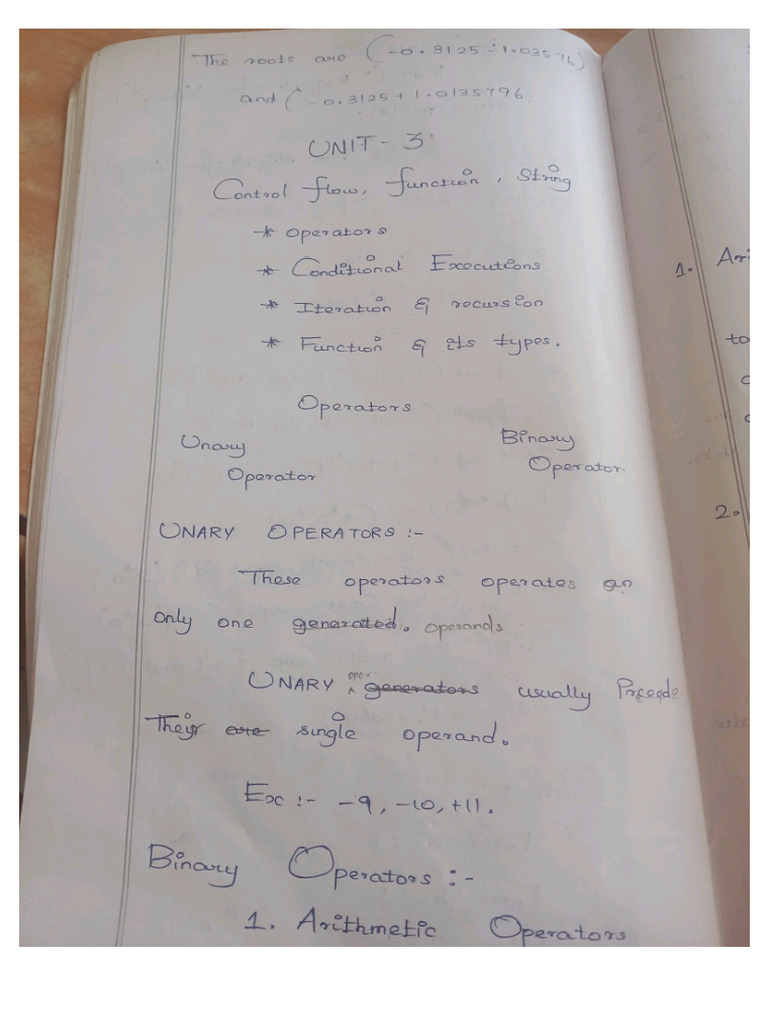 The roots are (-0.3125 - 1.03576)
and (-0.3125 + 1.0135796
UNIT - 3.
Control flow, function, String
* Operators
* Conditional Executions
* Iteration & recursion
* Function & its types.
Operators
Unary Operator
Binary Operator.
UNARY OPERATORS :-
These operators operates on
only one generated. operands
UNARY ope. generators usually Preceede
Their are single operand.
Ex :- -9, -10, +11.
Binary Operators :-
1. Arithmetic Operators
1. Ari
to
2.